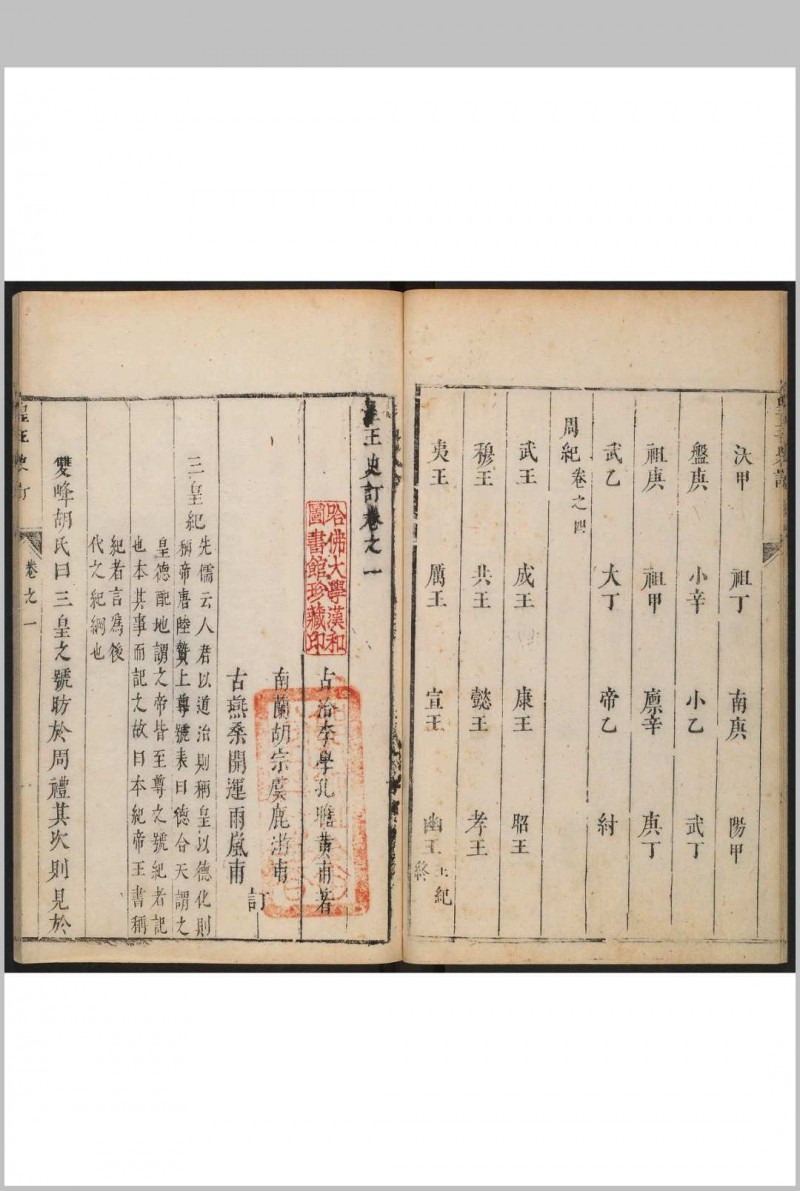 沃甲 祖丁 南庚 陽甲
盤庚 小辛 小乙 武丁
祖庚 祖甲 廪辛 庚丁
武乙 大丁 帝乙 紂
周紀卷之四
武王 成王 康王 昭王
穆王 共王 懿王 孝王
夷王 厲王 宣王 幽王
王紀
終
皇王史訂卷之一
哈佛大學漢和
圖書館珍藏印
古洽李學孔瞻黄甫著
南蘭胡宗虞鹿游甫
古燕桑開運雨嵐甫
訂
三皇紀
先儒云人君以道治則稱皇以德化則
稱帝唐陸贄上尊號表曰德合天謂之
皇德配地謂之帝皆至尊之號紀者記
也本其事而記之故曰本紀帝王書稱
紀者言爲後
代之紀綱也
雙峰胡氏曰三皇之號昉於周禮其次則見於
皇王史訂
卷之一